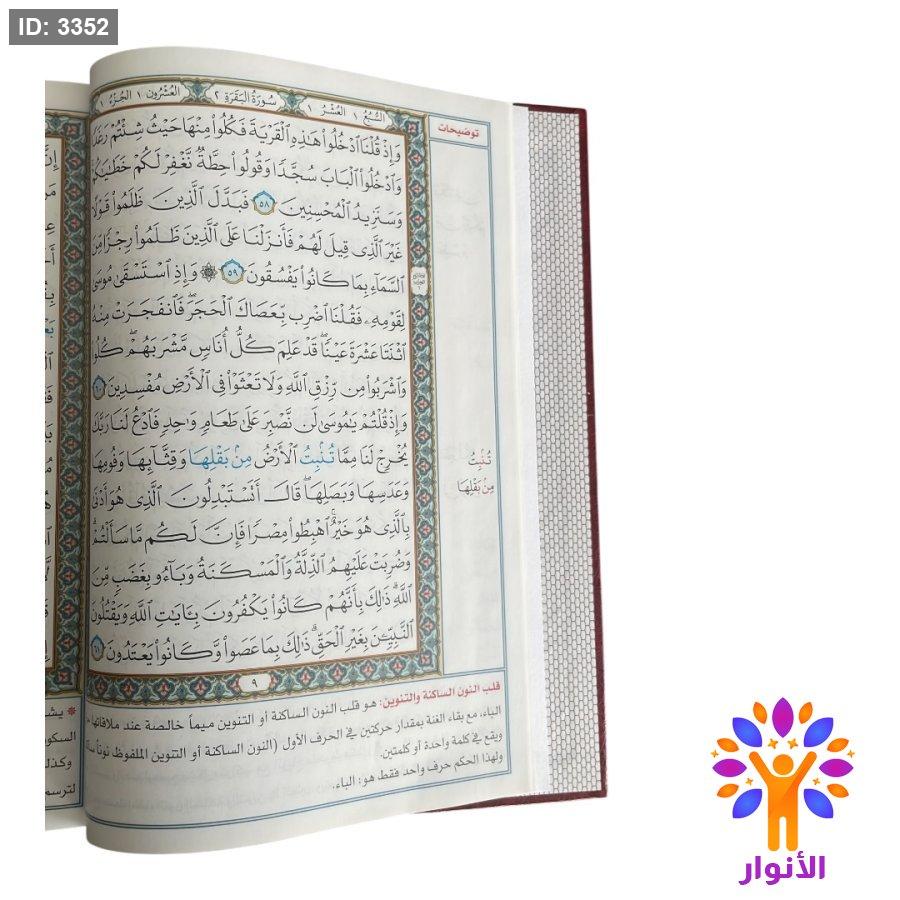 ID: 3352
السُّبُع ١ العُشْر ١ سُورَةُ البَقَرَةِ ٢ العُشْرُون ١ الجُزْءُ ١
توضيحات
وَإِذْ قُلْنَا ٱدْخُلُوا۟ هَٰذِهِ ٱلْقَرْيَةَ فَكُلُوا۟ مِنْهَا حَيْثُ شِئْتُمْ رَغَدًا
وَٱدْخُلُوا۟ ٱلْبَابَ سُجَّدًا وَقُولُوا۟ حِطَّةٌ نَّغْفِرْ لَكُمْ خَطَٰيَٰكُمْ
وَسَنَزِيدُ ٱلْمُحْسِنِينَ ٥٨ فَبَدَّلَ ٱلَّذِينَ ظَلَمُوا۟ قَوْلًا
غَيْرَ ٱلَّذِى قِيلَ لَهُمْ فَأَنزَلْنَا عَلَى ٱلَّذِينَ ظَلَمُوا۟ رِجْزًا مِّنَ
ٱلسَّمَآءِ بِمَا كَانُوا۟ يَفْسُقُونَ ٥٩ ۞ وَإِذِ ٱسْتَسْقَىٰ مُوسَىٰ
لِقَوْمِهِۦ فَقُلْنَا ٱضْرِب بِّعَصَاكَ ٱلْحَجَرَ ۖ فَٱنفَجَرَتْ مِنْهُ
ٱثْنَتَا عَشْرَةَ عَيْنًا ۖ قَدْ عَلِمَ كُلُّ أُنَاسٍ مَّشْرَبَهُمْ ۖ كُلُوا۟
وَٱشْرَبُوا۟ مِن رِّزْقِ ٱللَّهِ وَلَا تَعْثَوْا۟ فِى ٱلْأَرْضِ مُفْسِدِينَ ٦٠
وَإِذْ قُلْتُمْ يَٰمُوسَىٰ لَن نَّصْبِرَ عَلَىٰ طَعَامٍ وَٰحِدٍ فَٱدْعُ لَنَا رَبَّكَ
يُخْرِجْ لَنَا مِمَّا تُنۢبِتُ ٱلْأَرْضُ مِنۢ بَقْلِهَا وَقِثَّآئِهَا وَفُومِهَا
وَعَدَسِهَا وَبَصَلِهَا ۖ قَالَ أَتَسْتَبْدِلُونَ ٱلَّذِى هُوَ أَدْنَىٰ
بِٱلَّذِى هُوَ خَيْرٌ ۚ ٱهْبِطُوا۟ مِصْرًا فَإِنَّ لَكُم مَّا سَأَلْتُمْ ۗ
وَضُرِبَتْ عَلَيْهِمُ ٱلذِّلَّةُ وَٱلْمَسْكَنَةُ وَبَآءُو بِغَضَبٍ مِّنَ
ٱللَّهِ ۗ ذَٰلِكَ بِأَنَّهُمْ كَانُوا۟ يَكْفُرُونَ بِـَٔايَٰتِ ٱللَّهِ وَيَقْتُلُونَ
ٱلنَّبِيِّـۧنَ بِغَيْرِ ٱلْحَقِّ ۗ ذَٰلِكَ بِمَا عَصَوا۟ وَّكَانُوا۟ يَعْتَدُونَ ٦١
تُنۢبِتُ
مِنۢ بَقْلِهَا
٩
قلب النون الساكنة والتنوين: هو قلب النون الساكنة أو التنوين ميماً خالصة عند ملاقاتها
الباء، مع بقاء الغنة بمقدار حركتين في الحرف الأول (النون الساكنة أو التنوين الملفوظ نوناً
ويقع في كلمة واحدة أو كلمتين.
ولهذا الحكم حرف واحد فقط هو: الباء.
السكون
وكذلك
لترسم
الأنوار